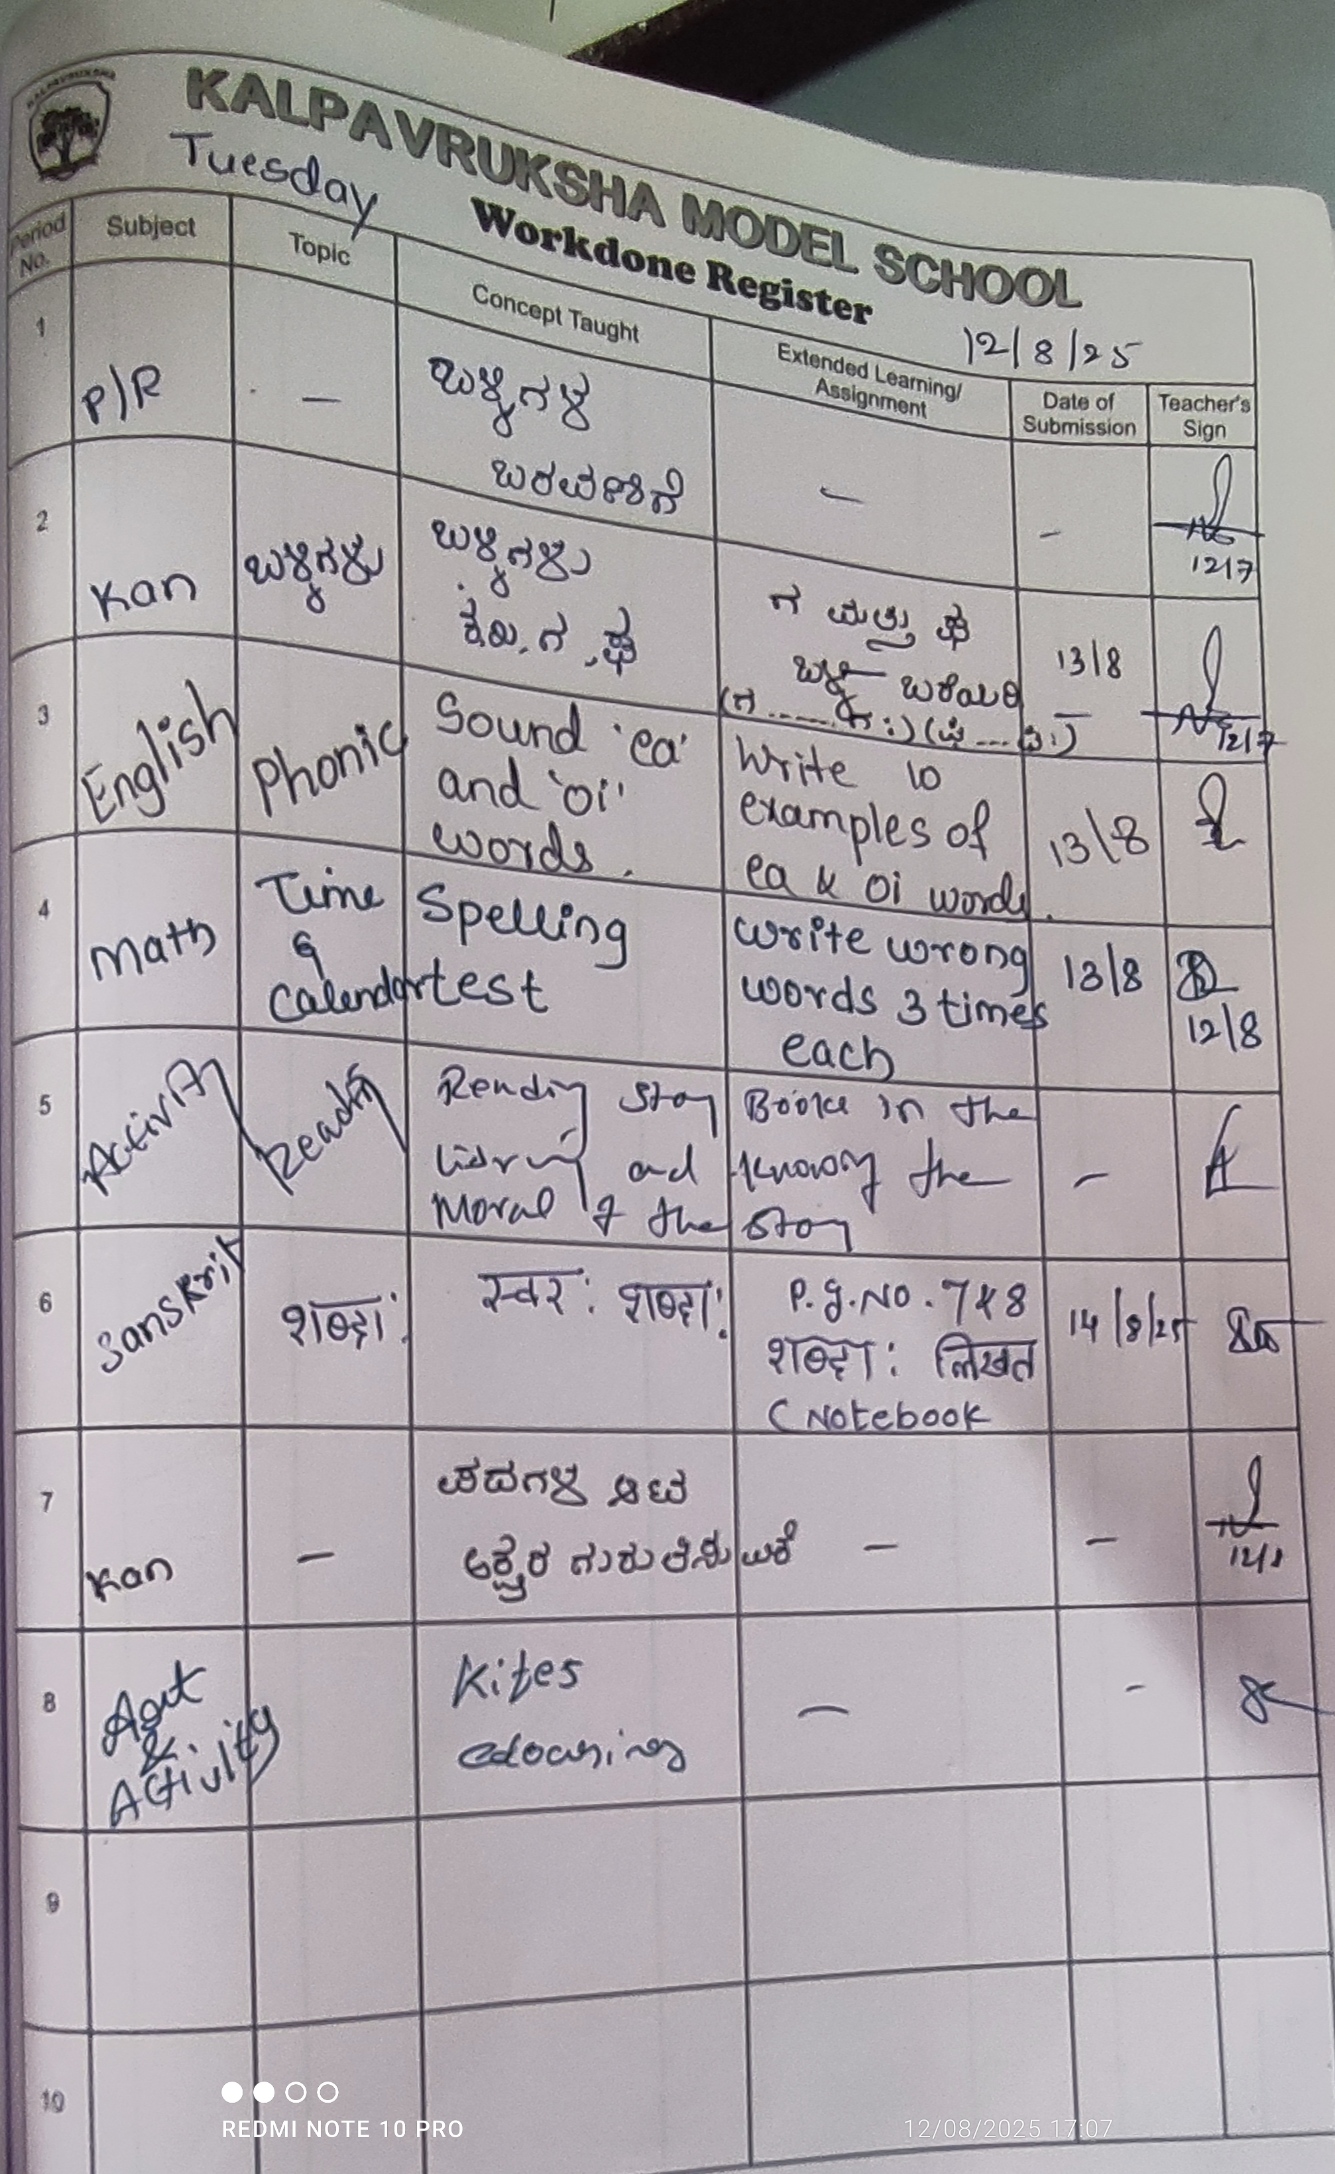 KALPAVRUKSHA
KALPAVRUKSHA MODEL SCHOOL
Tuesday
Workdone Register
12/8/25
Period No. Subject Topic Concept Taught Extended Learning/ Assignment Date of Submission Teacher's Sign
1 P/R — ಬಳ್ಳಿಗಳ
ಬರವಣಿಗೆ — -
12/7
2 Kan ಬಳ್ಳಿಗಳು ಬಳ್ಳಿಗಳು
ಗ ಮತ್ತು ಘ
13/8
12/7
3 English Phonic Sound 'ea'
and 'oi'
words.
Write 10
examples of
ea & oi words.
13/8
4 Math Time
&
Calendar
Spelling
test
Write wrong
words 3 times
each
13/8
12/8
5 Activity Reading Reading story Books in the
and knowing the
Moral of the story
-
6 Sanskrit शब्दाः स्वरः शब्दाः
P.g.NO. 7 & 8
शब्दाः लिखत
(Notebook
14/8/25
7 Kan — ಪದಗಳ
ಅಕ್ಷರ ಗುರುತಿಸುವಿಕೆ — -
8 Art
&
Activity
Kites
— -
9
10
REDMI NOTE 10 PRO
12/08/2025 17:07